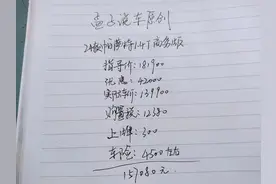 孟子说车原创
24款闲夢特1.4T商务版
指导价:181900
优惠:42000
实际车价:139900
购置税:12380
上牌:300
车险:4500左右
157080元.